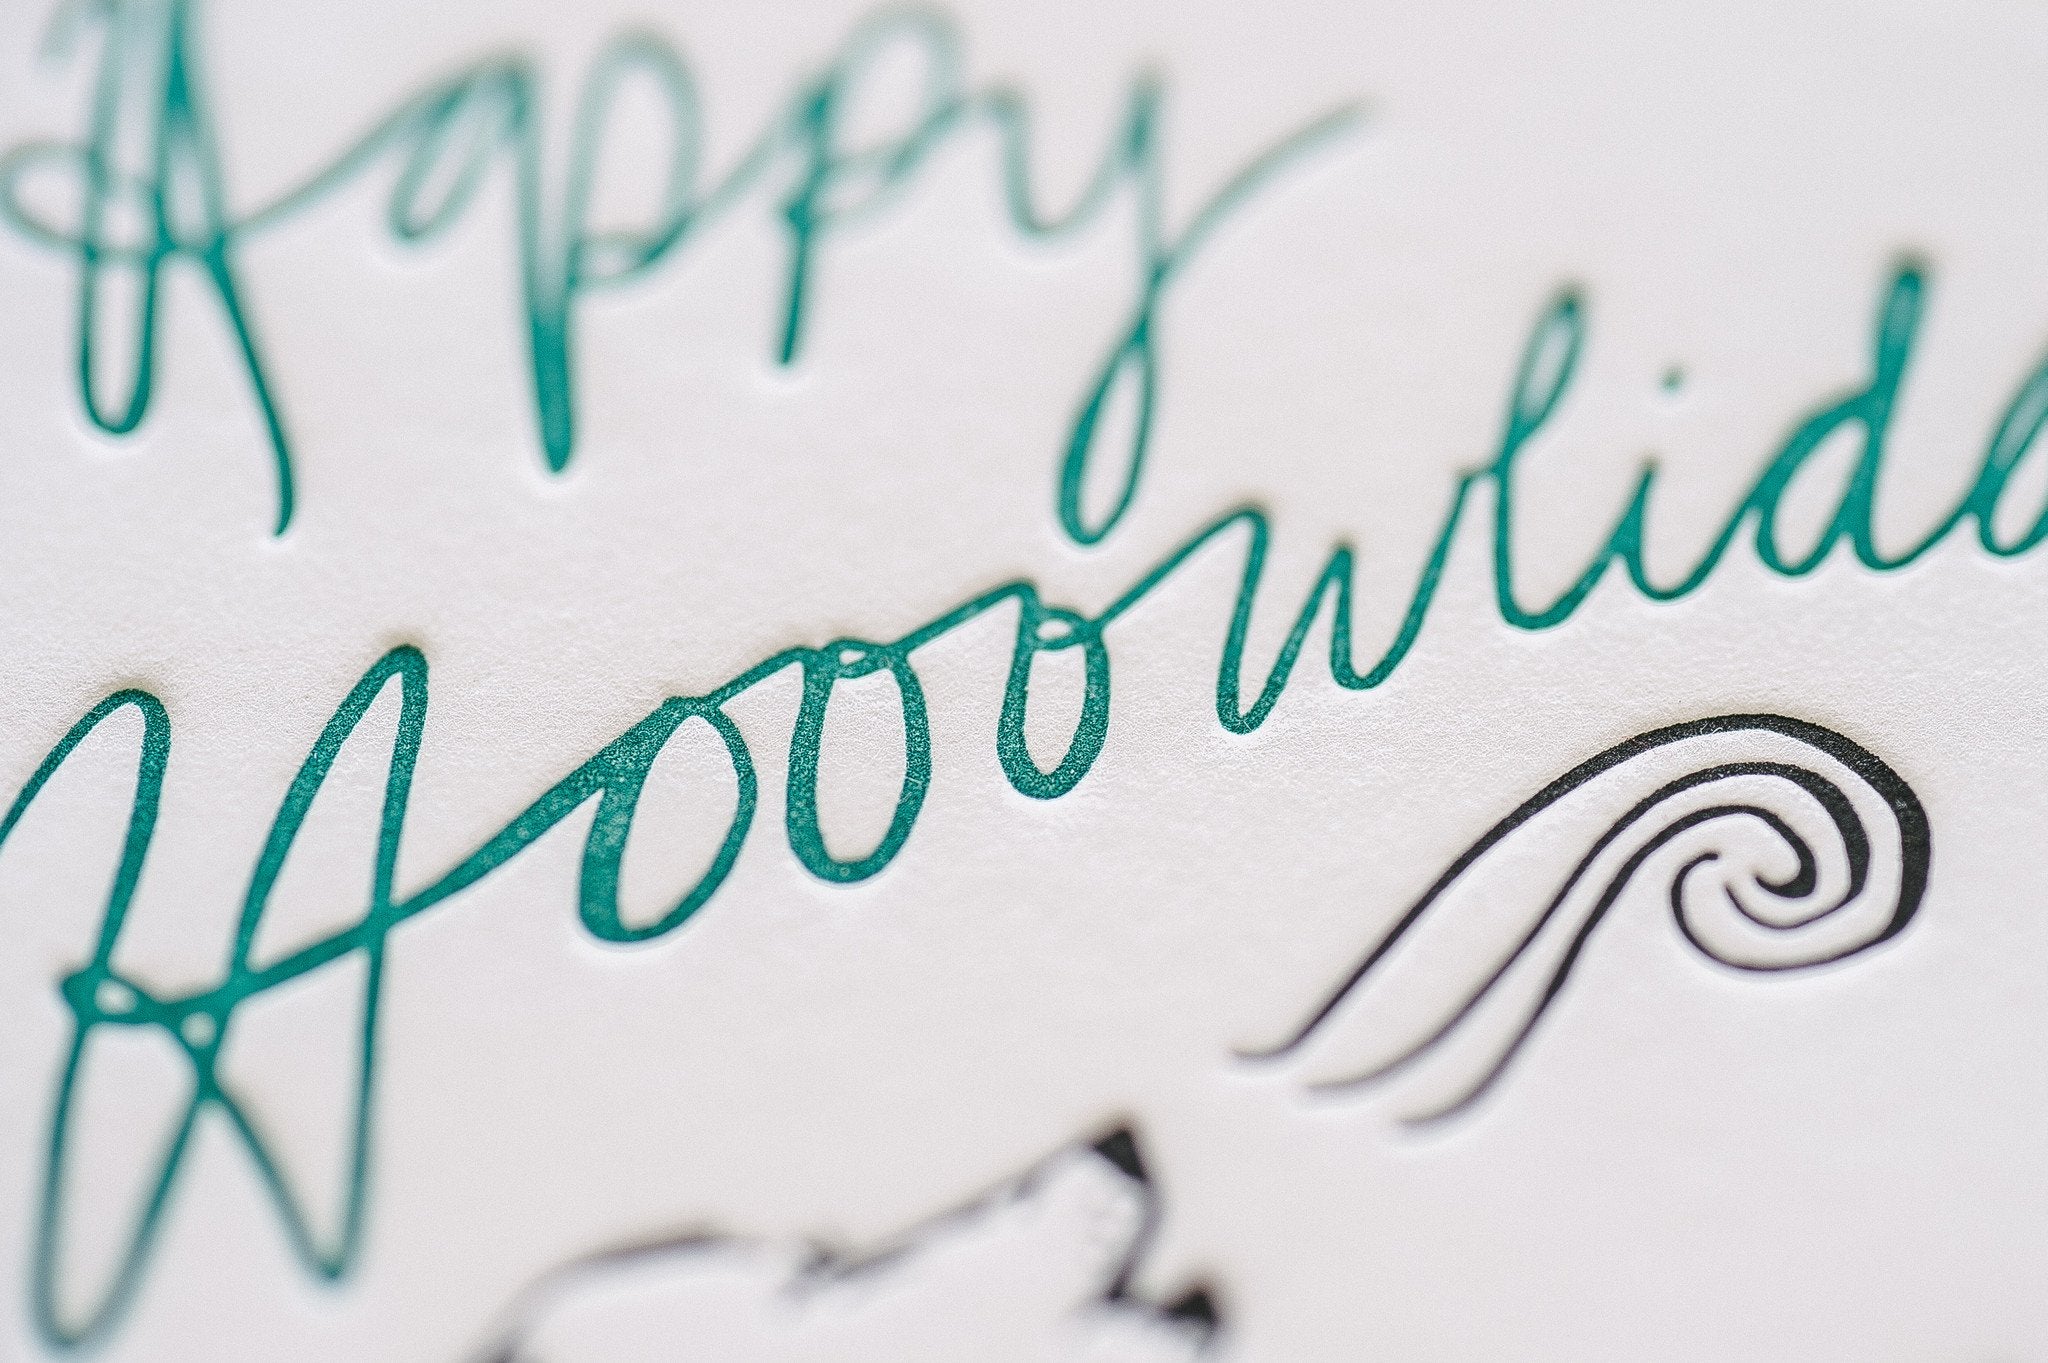 Happy
Hooowlida